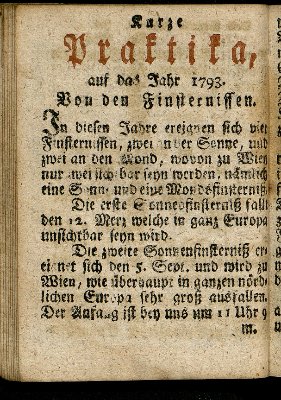 Kurze
Praktika,
auf das Jahr 1793.
Von den Finsternissen.
In diesen Jahre ereignen sich vier
Finsternissen, zwei an der Sonne, und
zwei an den Mond, wovon zu Wien
nur zwei sichtbar seyn werden, nämlich
eine Sonn- und eine Mondsfinsterniß.
Die erste Sonnenfinsterniß fällt
den 12. Merz welche in ganz Europa
unsichtbar seyn wird.
Die zweite Sonnenfinsterniß er-
eignet sich den 5. Sept. und wird zu
Wien, wie überhaupt in ganzen nörd-
lichen Europa sehr groß ausfallen.
Der Anfang ist bey uns um 11 Uhr 9
m.